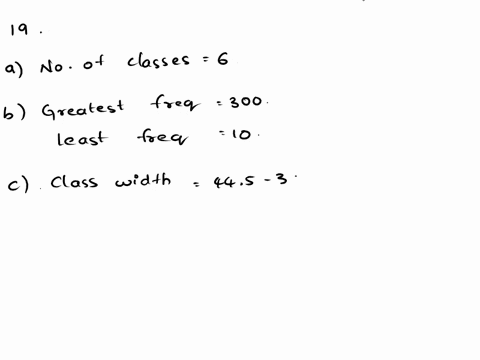 19.
a) No. of classes = 6
b) Greatest freq = 300.
least freq = 10.
c) Class width = 44.5 - 3